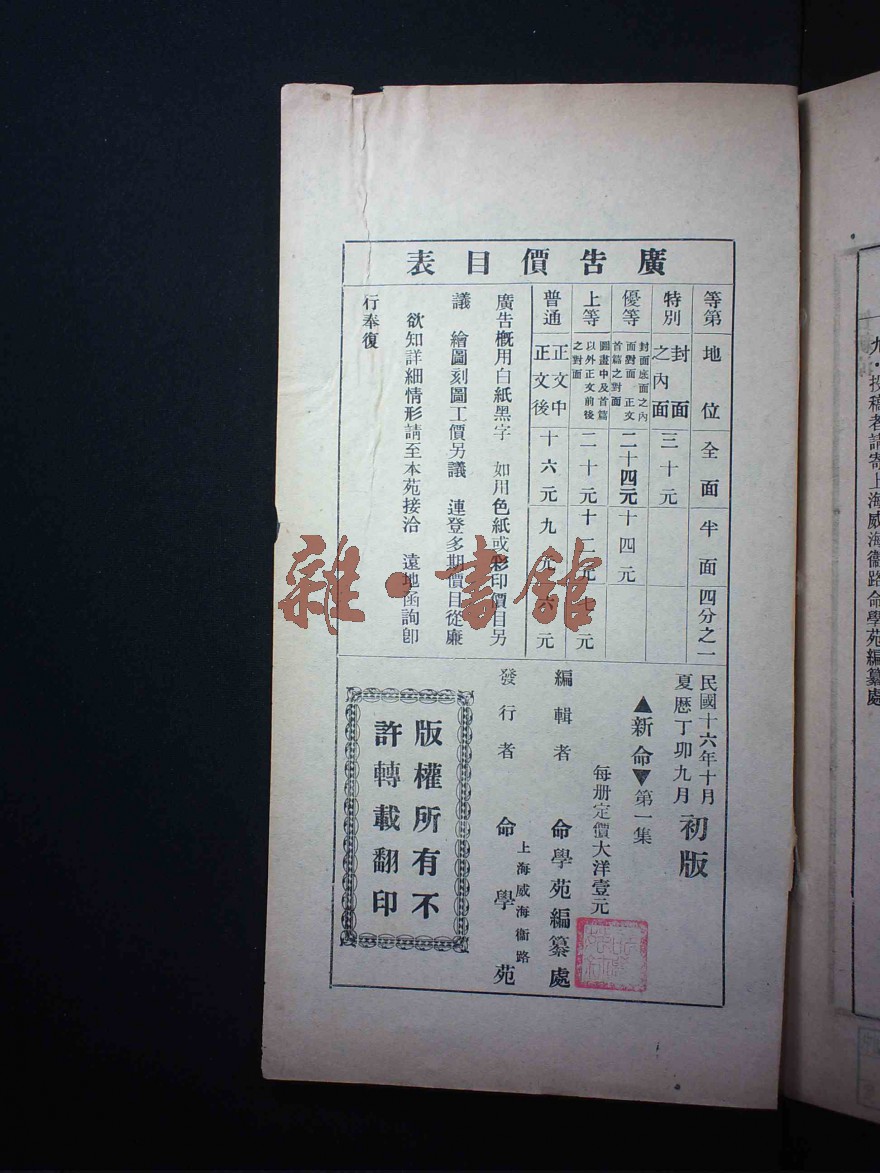 廣告價目表
等第 地位 全面 半面 四分之一
特別 封面之內面 三十元
優等 封面底面之內面對面 正文首篇之對面 二十四元 十四元
上等 圖畫中及首篇以外正文前後之對面 二十元 十二元 七元
普通 正文中 正文後 十六元 九元 六元
廣告概用白紙黑字 如用色紙或彩印價目另
議 繪圖刻圖工價另議 連登多期價目從廉
欲知詳細情形請至本苑接洽 遠地函詢卽
行奉復
民國十六年十月
夏曆丁卯九月
初版
▲新命▼第一集
每册定價大洋壹元
編輯者 命學苑編纂處
上海威海衞路
發行者 命學苑
版權所有不
許轉載翻印
九．投稿者請寄上海威海衞路命學苑編纂處
雜·書館